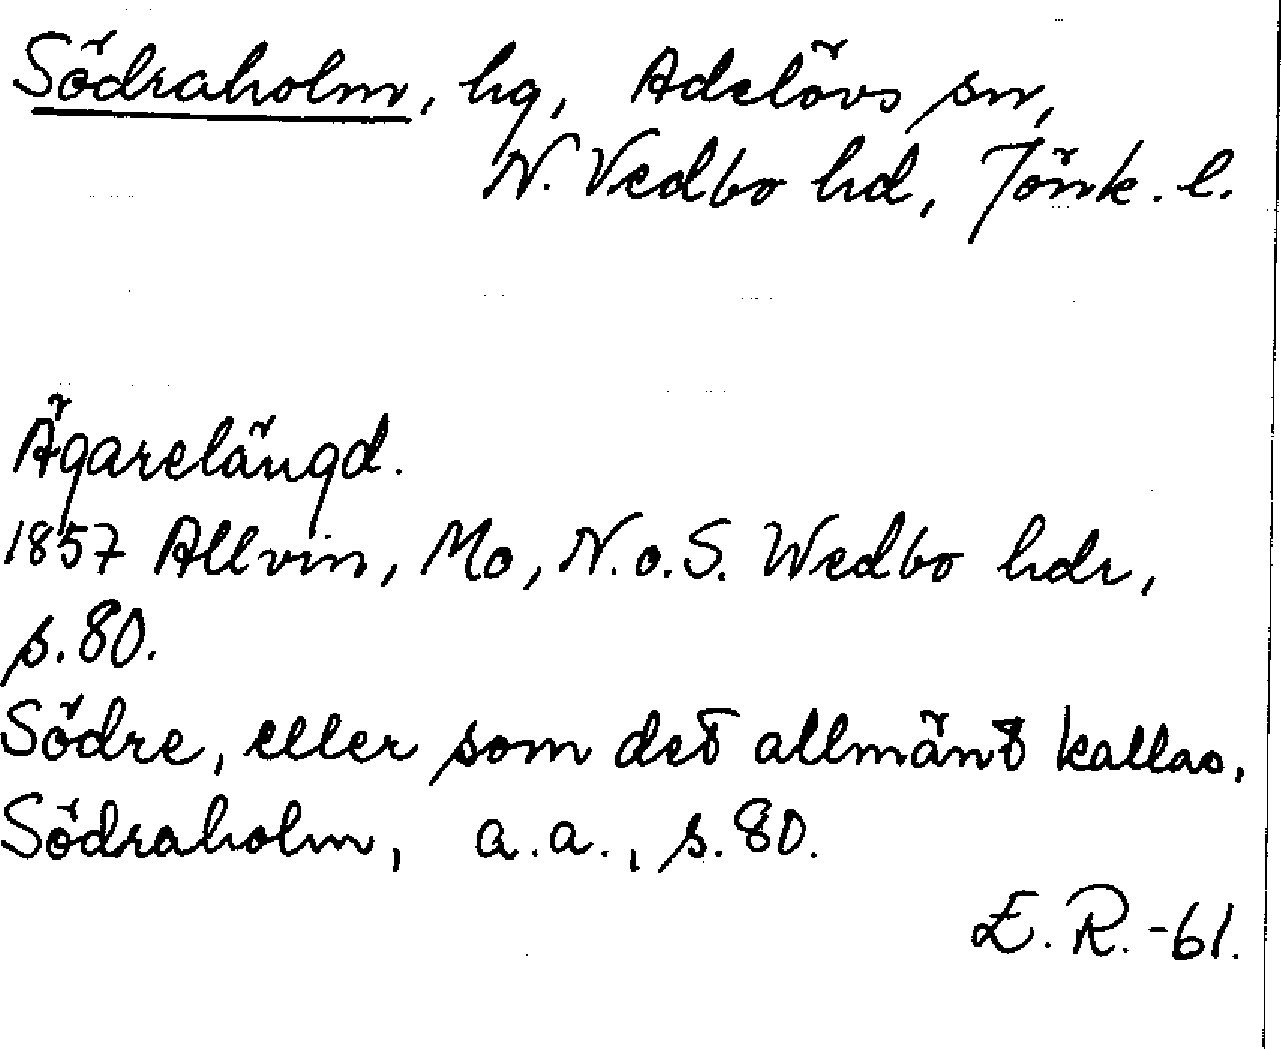 Södraholm, hg, Adelövs sn,
N. Vedbo hd, Jönk. l.
Ägarelängd.
1857 Allvin, Mo, N.o.S. Wedbo hdr,
s. 80.
Södre, eller som det allmänt kallas,
Södraholm, a.a., s. 80.
E. R. -61.